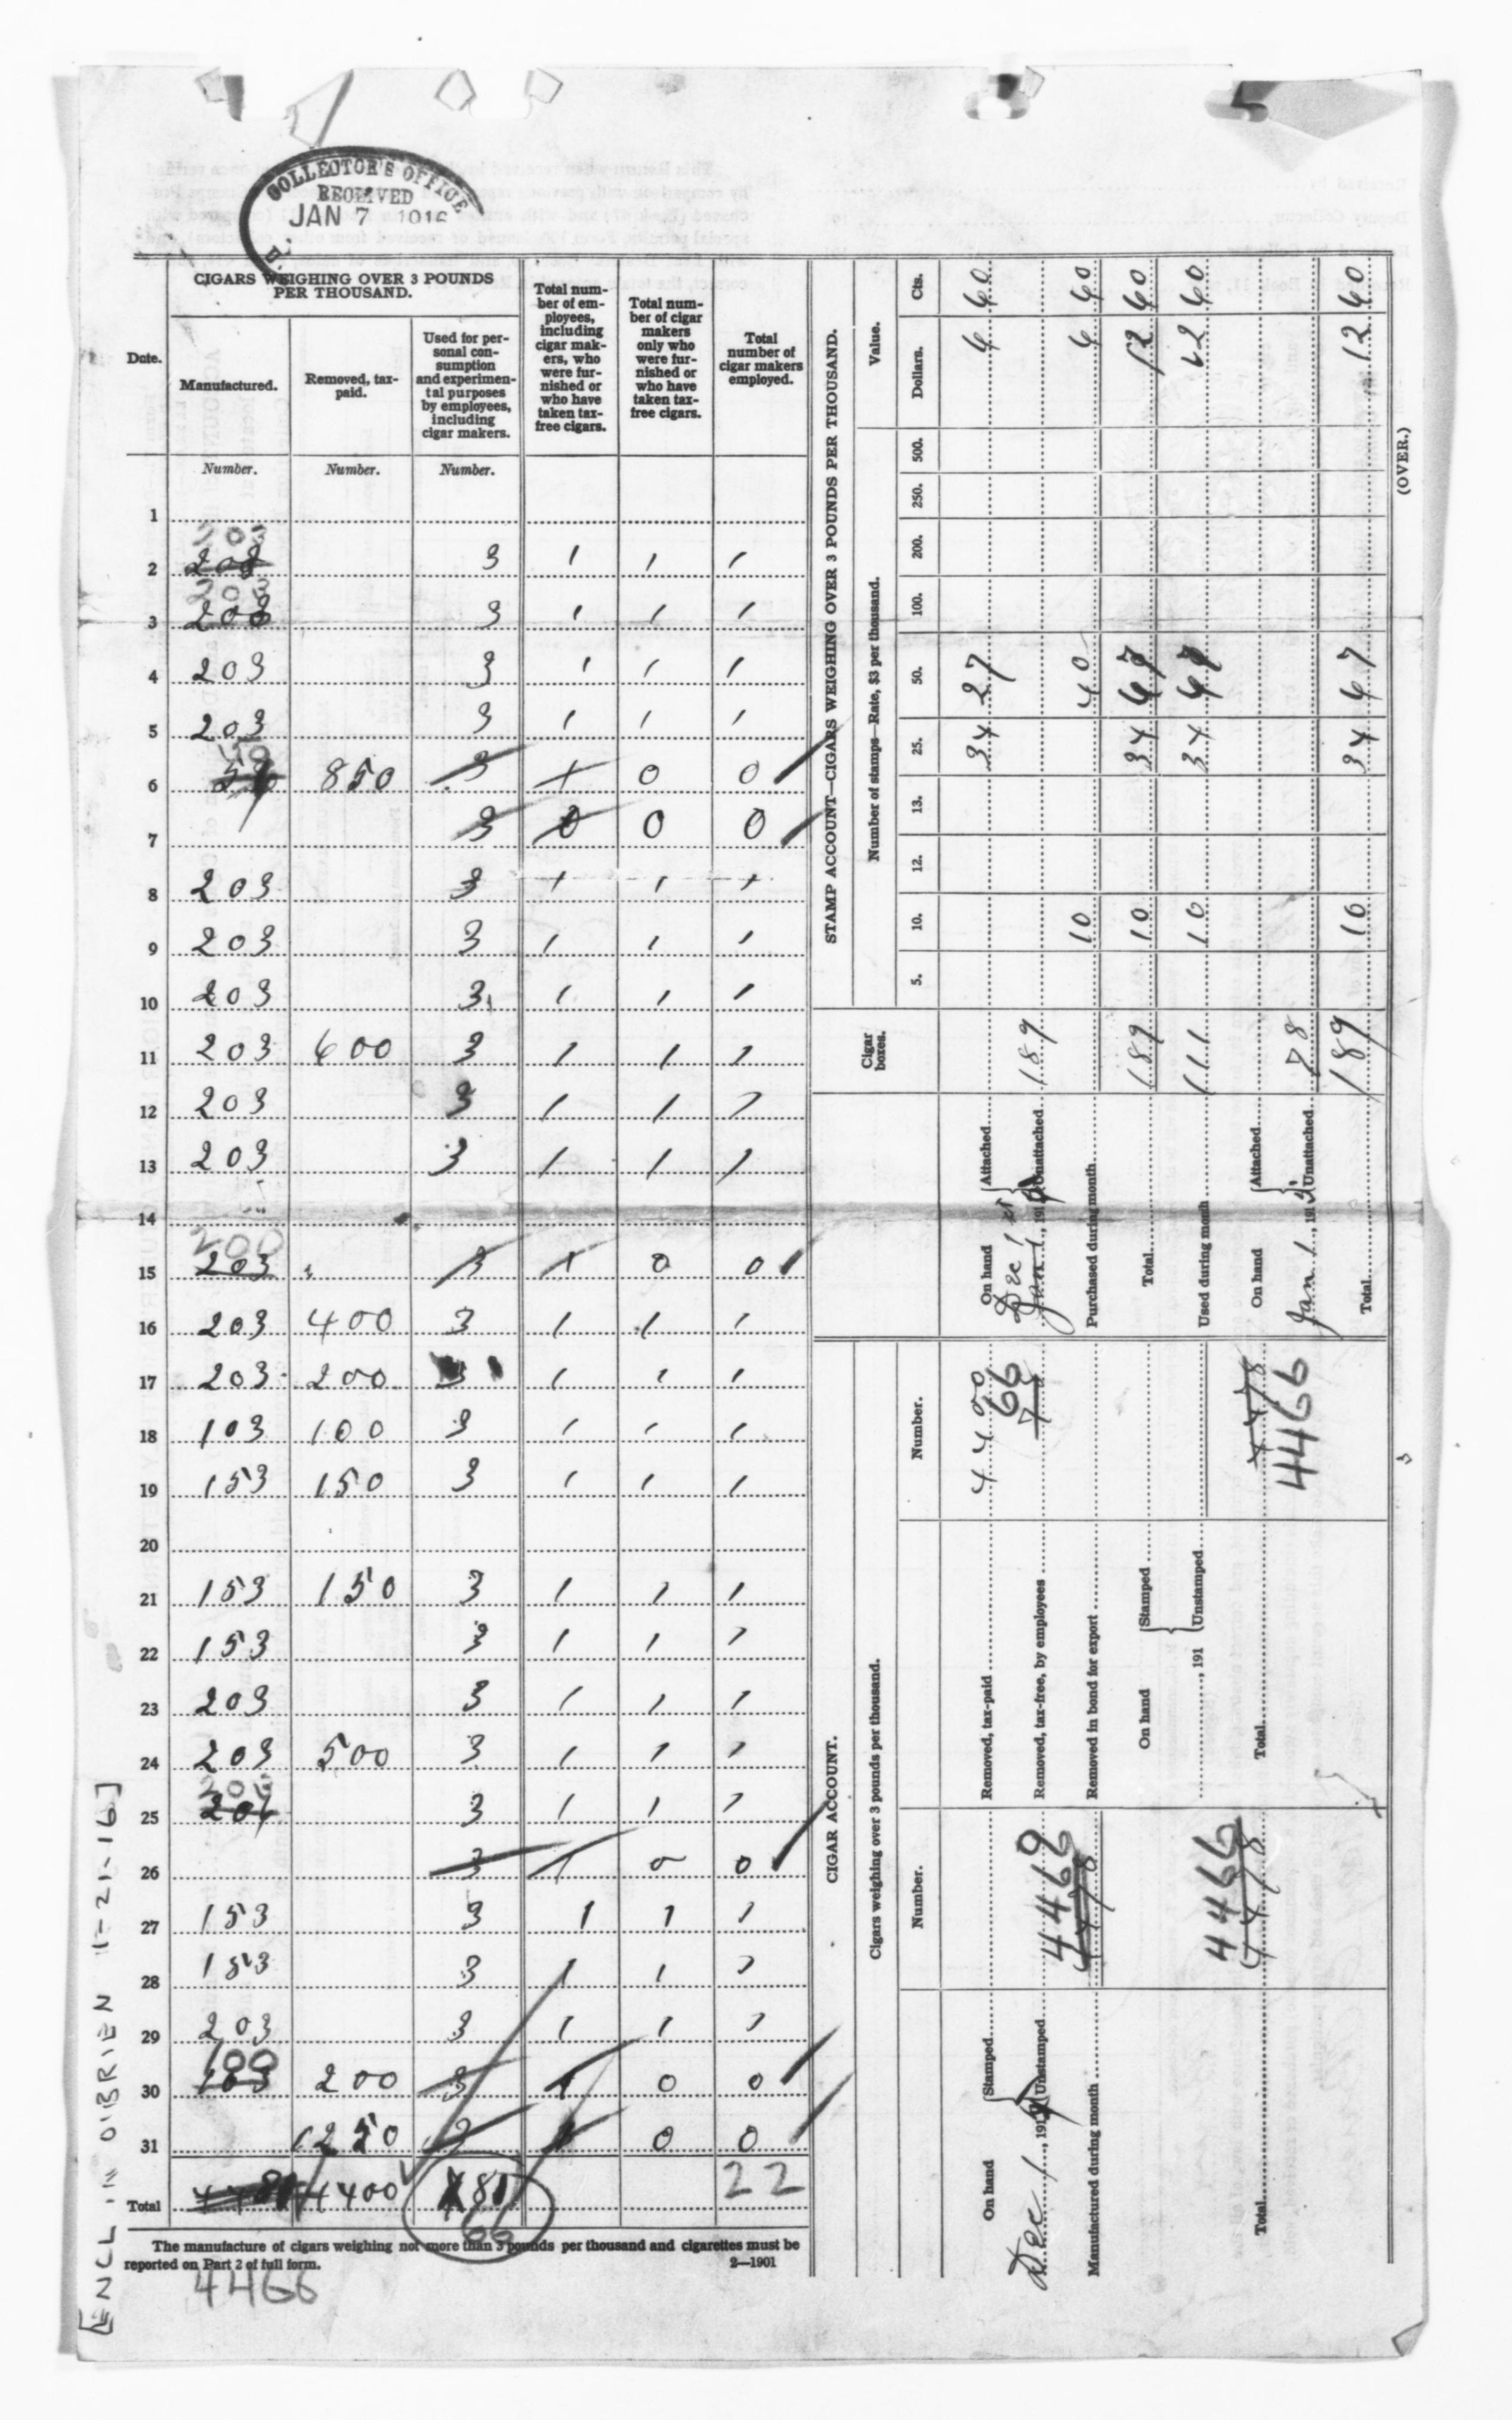 COLLECTOR'S OFFICE
RECEIVED
JAN 7 1916
CIGARS WEIGHING OVER 3 POUNDS PER THOUSAND.
Date.
Manufactured.
Removed, tax-paid.
Used for personal consumption and experimental purposes by employees, including cigar makers.
Total number of employees, including cigar makers, who were furnished or who have taken tax-free cigars.
Total number of cigar makers only who were furnished or who have taken tax-free cigars.
Total number of cigar makers employed.
Number. Number. Number.
1
2 203 3 1 1 1
3 203 3 1 1 1
4 203 3 1 1 1
5 203 3 1 1 1
6 850 3 1 0 0
7 3 0 0 0
8 203 3 1 1 1
9 203 3 1 1 1
10 203 3 1 1 1
11 203 600 3 1 1 1
12 203 3 1 1 1
13 203 3 1 1 1
14
200
15 203 3 1 0 0
16 203 400 3 1 1 1
17 203 200 3 1 1 1
18 103 100 3 1 1 1
19 153 150 3 1 1 1
20
21 153 150 3 1 1 1
22 153 3 1 1 1
23 203 3 1 1 1
24 203 500 3 1 1 1
25 3 1 1 1
26 3 1 0 0
27 153 3 1 1 1
28 153 3 1 1 1
29 203 3 1 1 1
100
30 103 200 3 1 0 0
31 1250 3 1 0 0
Total 4400 81 22
66
The manufacture of cigars weighing not more than 3 pounds per thousand and cigarettes must be
reported on Part 2 of full form. 2—1901
4466
[ENCL. in O'BRIEN 11-21-16]
STAMP ACCOUNT—CIGARS WEIGHING OVER 3 POUNDS PER THOUSAND.
Cigar boxes.
Number of stamps—Rate, $3 per thousand.
Value.
5. 10. 12. 13. 25. 50. 100. 200. 250. 500. Dollars. Cts.
On hand Attached 34 27 6 60
Dec 1st
Jan 1, 191 Unattached 189
Purchased during month 10 40 6 60
Total 189 10 34 67 12 60
Used during month 111 10 34 67 12 60
On hand Attached
Jan 1, 191 Unattached 78
Total 189 10 34 67 12 60
CIGAR ACCOUNT.
Cigars weighing over 3 pounds per thousand.
Number. Number.
On hand Stamped
Dec 1, 191 Unstamped
Manufactured during month 4466
Total 4466
Removed, tax-paid 4400
Removed, tax-free, by employees 66
Removed in bond for export
On hand Stamped
, 191 Unstamped
Total 4478
4466
(OVER.)
3